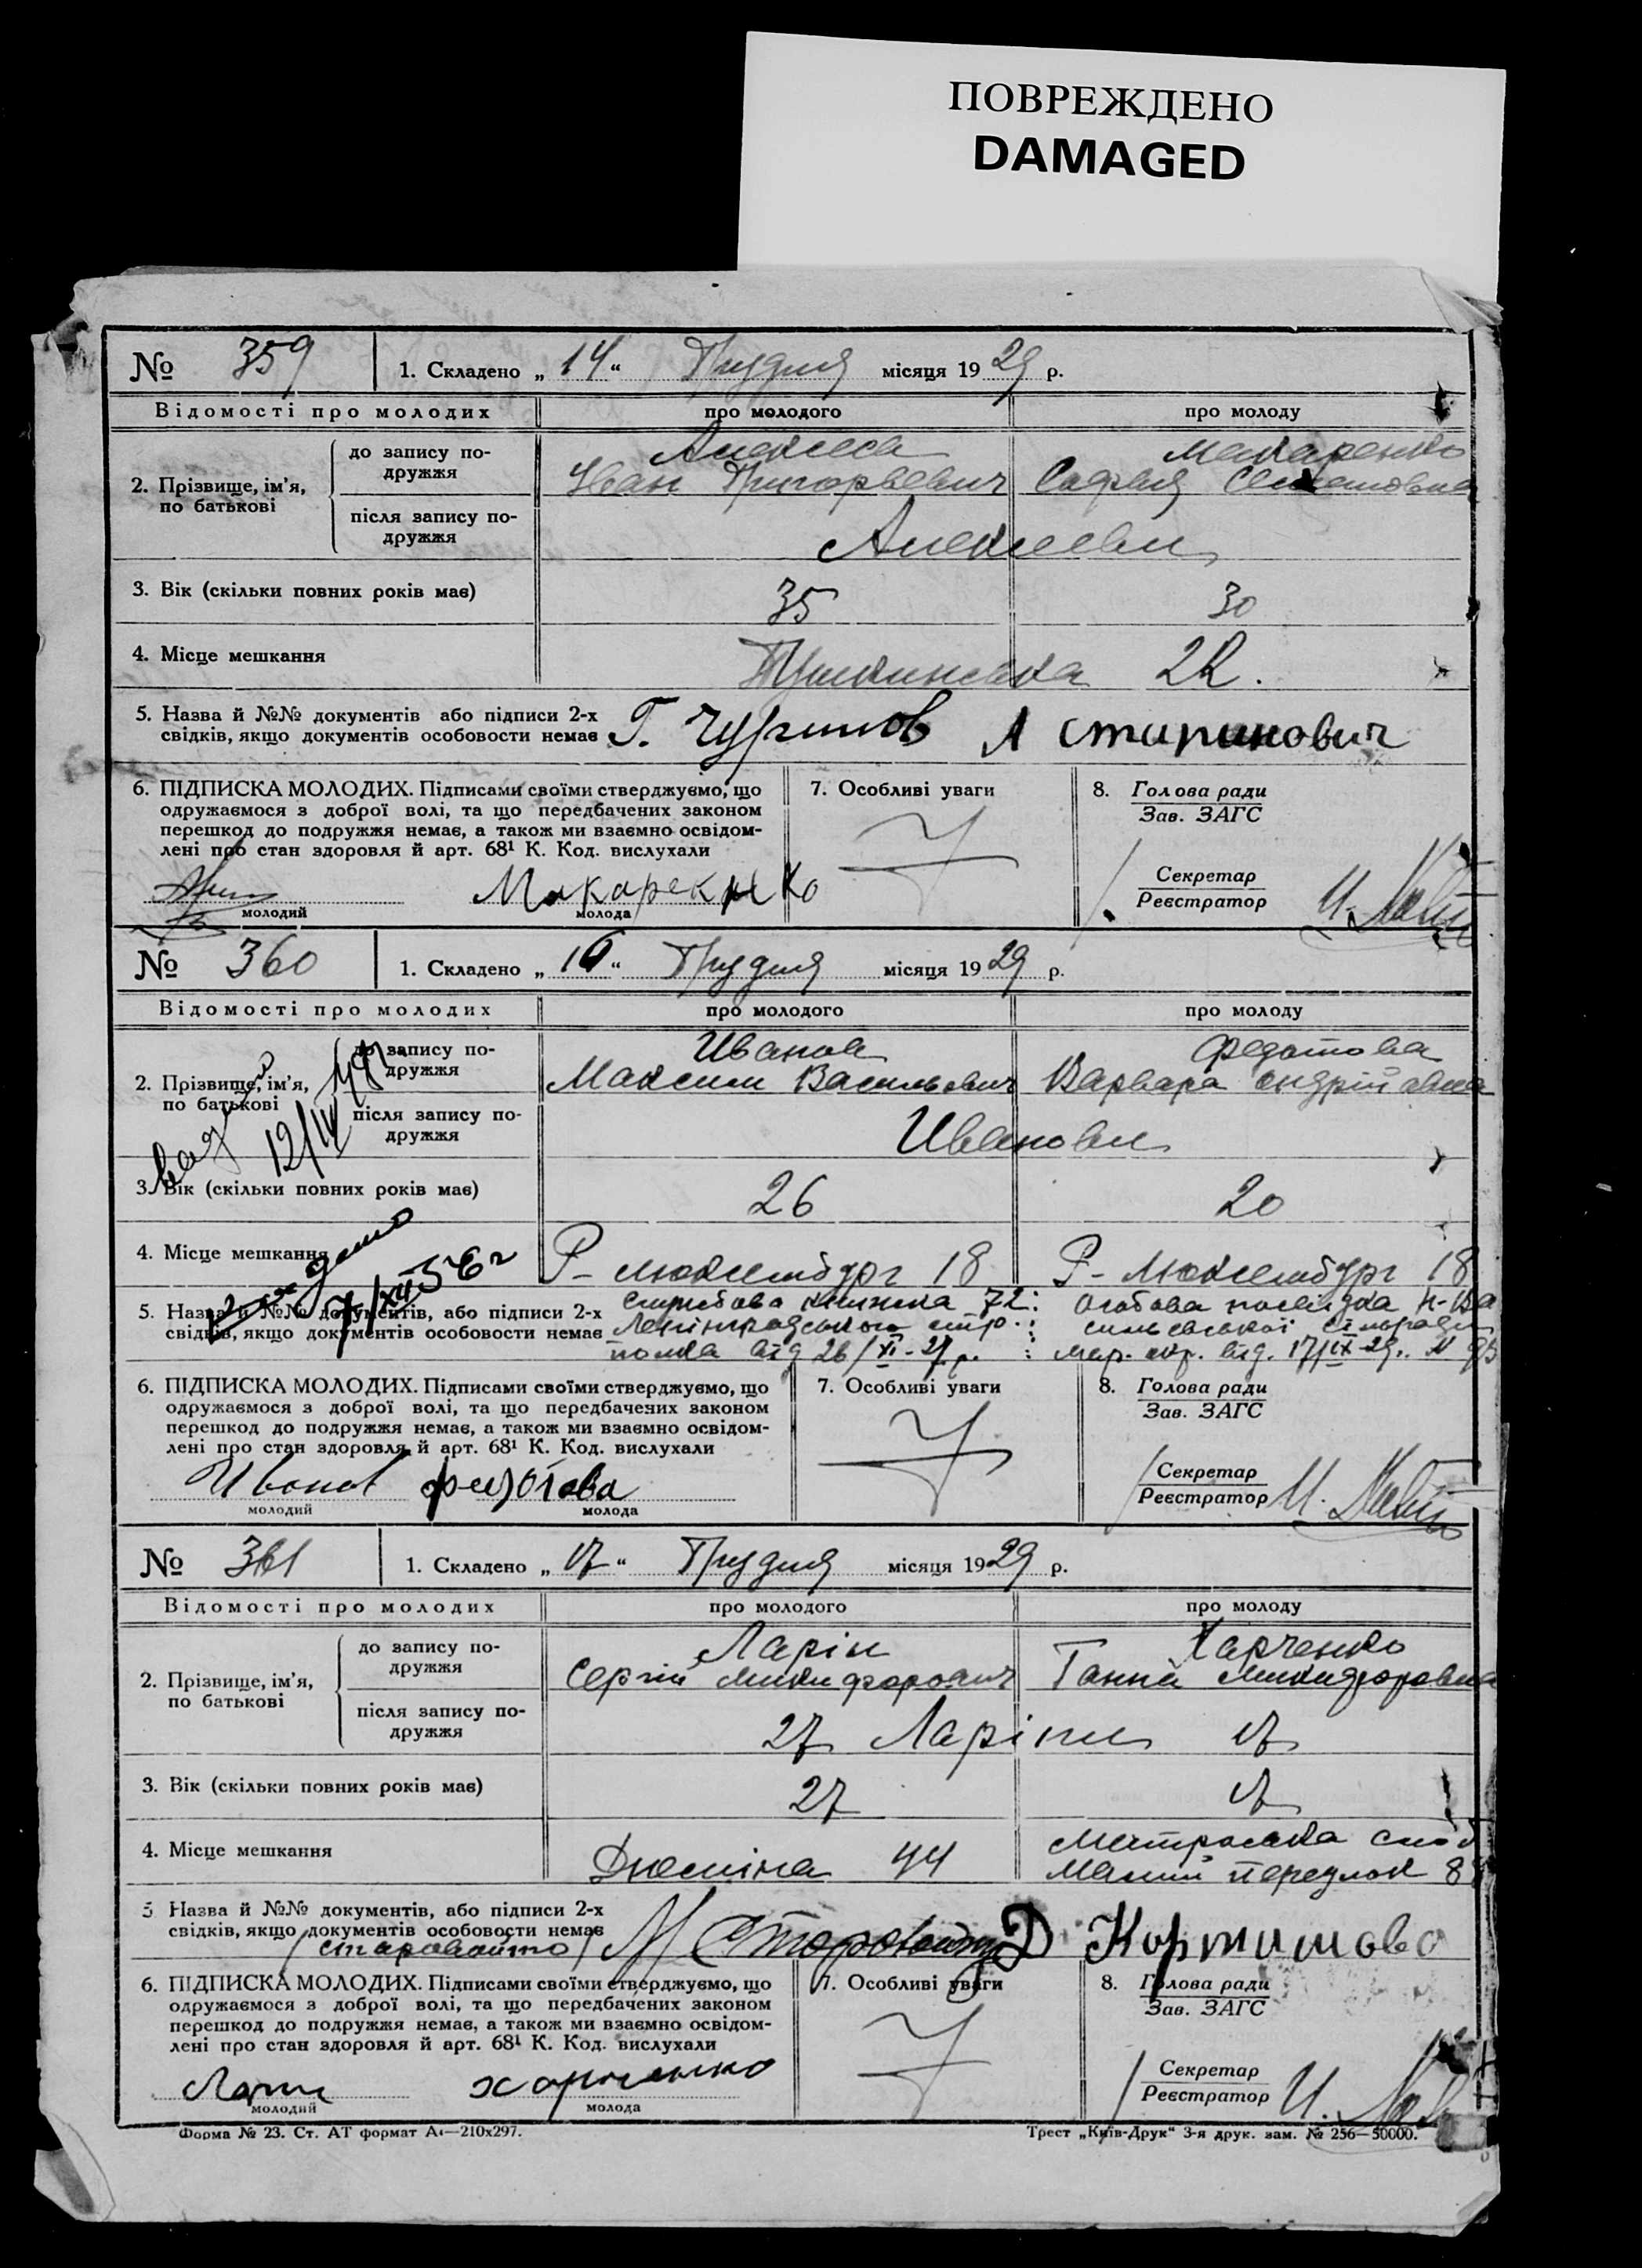 ПОВРЕЖДЕНО
DAMAGED
№ 359 1. Складено „ 14 “ Грудня місяця 1929 р.
Відомості про молодих про молодого про молоду
2. Прізвище, ім’я, по батькові
до запису подружжя
Макаренко
Іван Григорьевич Софья
після запису подружжя
3. Вік (скільки повних років має) 35 30
4. Місце мешкання Пушкинська 22.
5. Назва й №№ документів або підписи 2-х
свідків, якщо документів особовости немає Г.
6. ПІДПИСКА МОЛОДИХ. Підписами своїми стверджуємо, що
одружаємося з доброї волі, та що передбачених законом
перешкод до подружжя немає, а також ми взаємно освідом-
лені про стан здоровля й арт. 68¹ К. Код. вислухали
молодий молода
7. Особливі уваги
8. Голова ради
Зав. ЗАГС
Секретар
Реєстратор
№ 360 1. Складено „ 16 “ Грудня місяця 1929 р.
Відомості про молодих про молодого про молоду
2. Прізвище, ім’я, по батькові
до запису подружжя
Иванов Федотова
Максим Васильевич Варвара Андріївна
після запису подружжя
Ивановы
3. Вік (скільки повних років має) 26 20
4. Місце мешкання Р- Люксембург 18 Р- Люксембург 18
5. Назва й №№ документів, або підписи 2-х
свідків, якщо документів особовости немає
Службова книжка 72: Особова посвідка
Ленінградського стр. сільради
полка від 26/XI-27 р. : Мар. окр. від. 17/IX-29.
6. ПІДПИСКА МОЛОДИХ. Підписами своїми стверджуємо, що
одружаємося з доброї волі, та що передбачених законом
перешкод до подружжя немає, а також ми взаємно освідом-
лені про стан здоровля й арт. 68¹ К. Код. вислухали
Иванов Федотова
молодий молода
7. Особливі уваги
8. Голова ради
Зав. ЗАГС
Секретар
Реєстратор
№ 361 1. Складено „ 17 “ Грудня місяця 1929 р.
Відомості про молодих про молодого про молоду
2. Прізвище, ім’я, по батькові
до запису подружжя
Ларін Харченко
Сергій Микифорович Ганна Микифоровна
після запису подружжя
27 Ларіни 17
3. Вік (скільки повних років має) 27 17
4. Місце мешкання 44
Малий
5 Назва й №№ документів, або підписи 2-х
свідків, якщо документів особовости немає
6. ПІДПИСКА МОЛОДИХ. Підписами своїми стверджуємо, що
одружаємося з доброї волі, та що передбачених законом
перешкод до подружжя немає, а також ми взаємно освідом-
лені про стан здоровля й арт. 68¹ К. Код. вислухали
Харченко
молодий молода
7. Особливі уваги
8. Голова ради
Зав. ЗАГС
Секретар
Реєстратор
Форма № 23. Ст. АТ формат А₄—210х297. Трест „Київ-Друк“ 3-я друк. зам. № 256—50000.